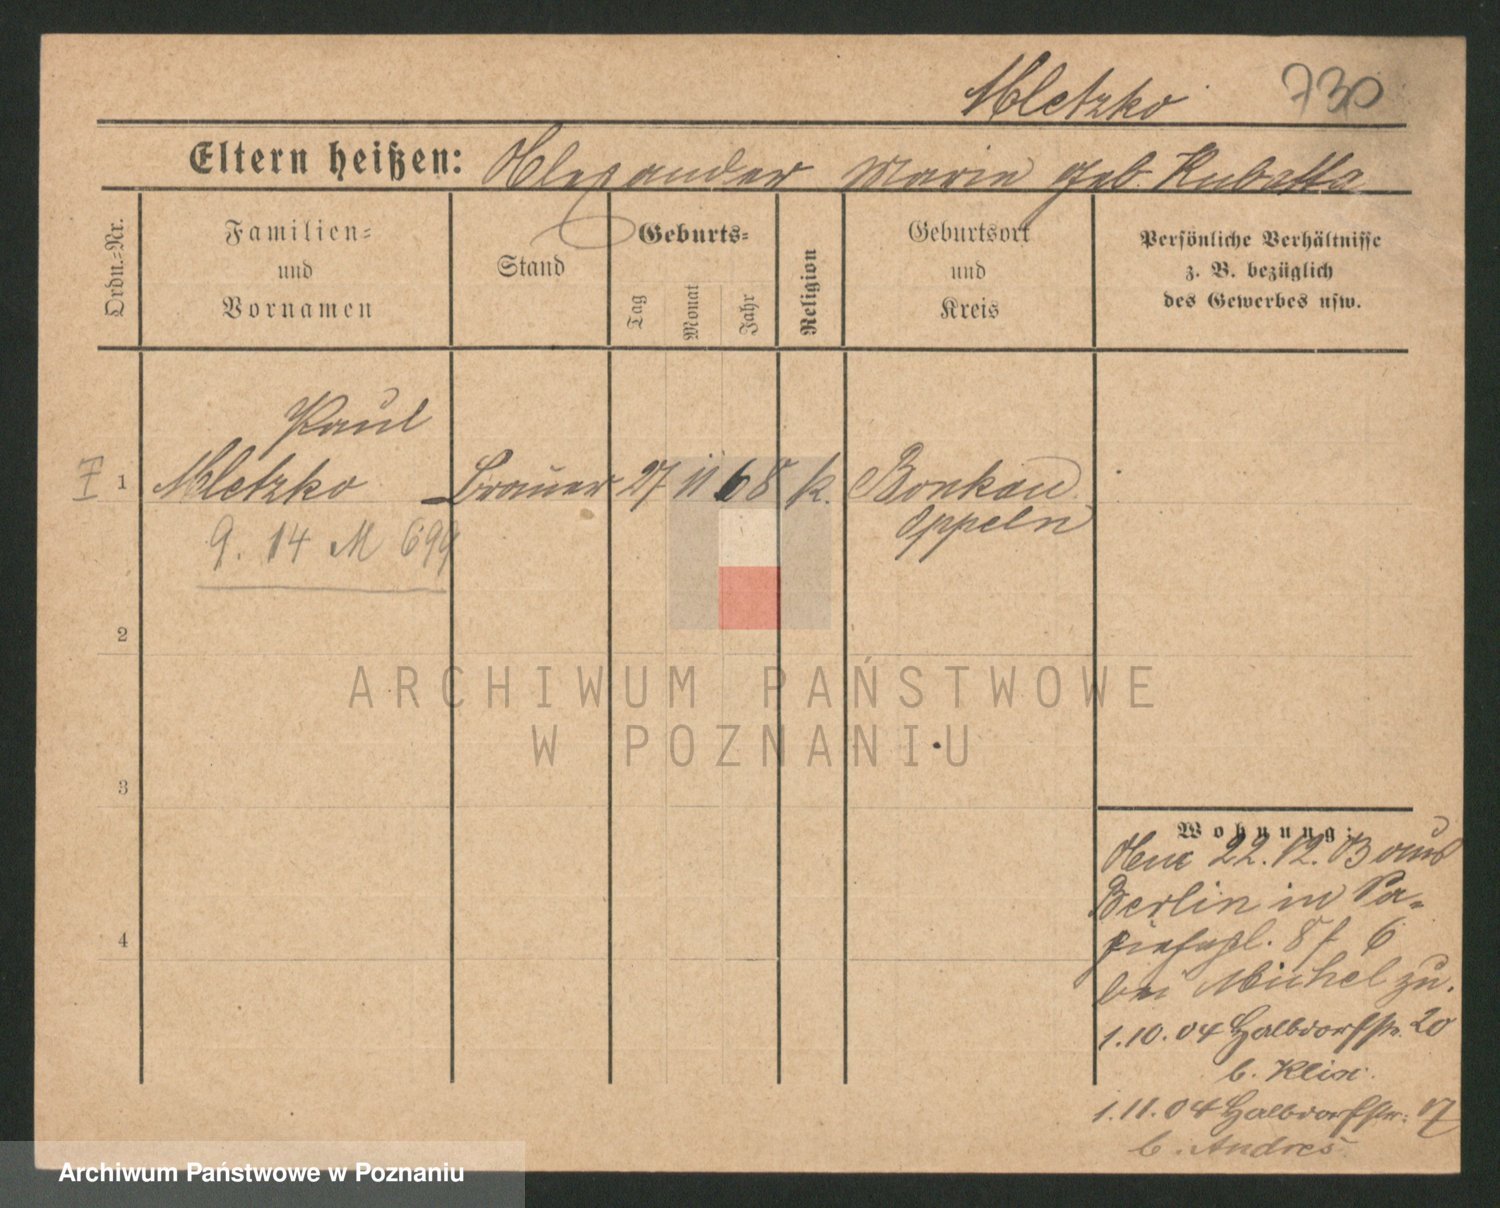 Mletzko 730
Eltern heißen: Alexander Marie geb. Kubatta
Ordn.-Nr.
Familien-
und
Vornamen
Stand
Geburts-
Tag
Monat
Jahr
Religion
Geburtsort
und
Kreis
Persönliche Verhältnisse
z. B. bezüglich
des Gewerbes usw.
Paul
1 Mletzko Brauer 27 11 68 k. Bonkau
Oppeln
9. 14 M 699
2
ARCHIWUM PAŃSTWOWE
W POZNANIU
3
4
Wohnung:
22.12.03 aus
Berlin in
bei Michel zu.
1.10.04 Halbdorfstr. 20
b. Klix.
1.11.04 Halbdorfstr. 17
b. Andres
Archiwum Państwowe w Poznaniu